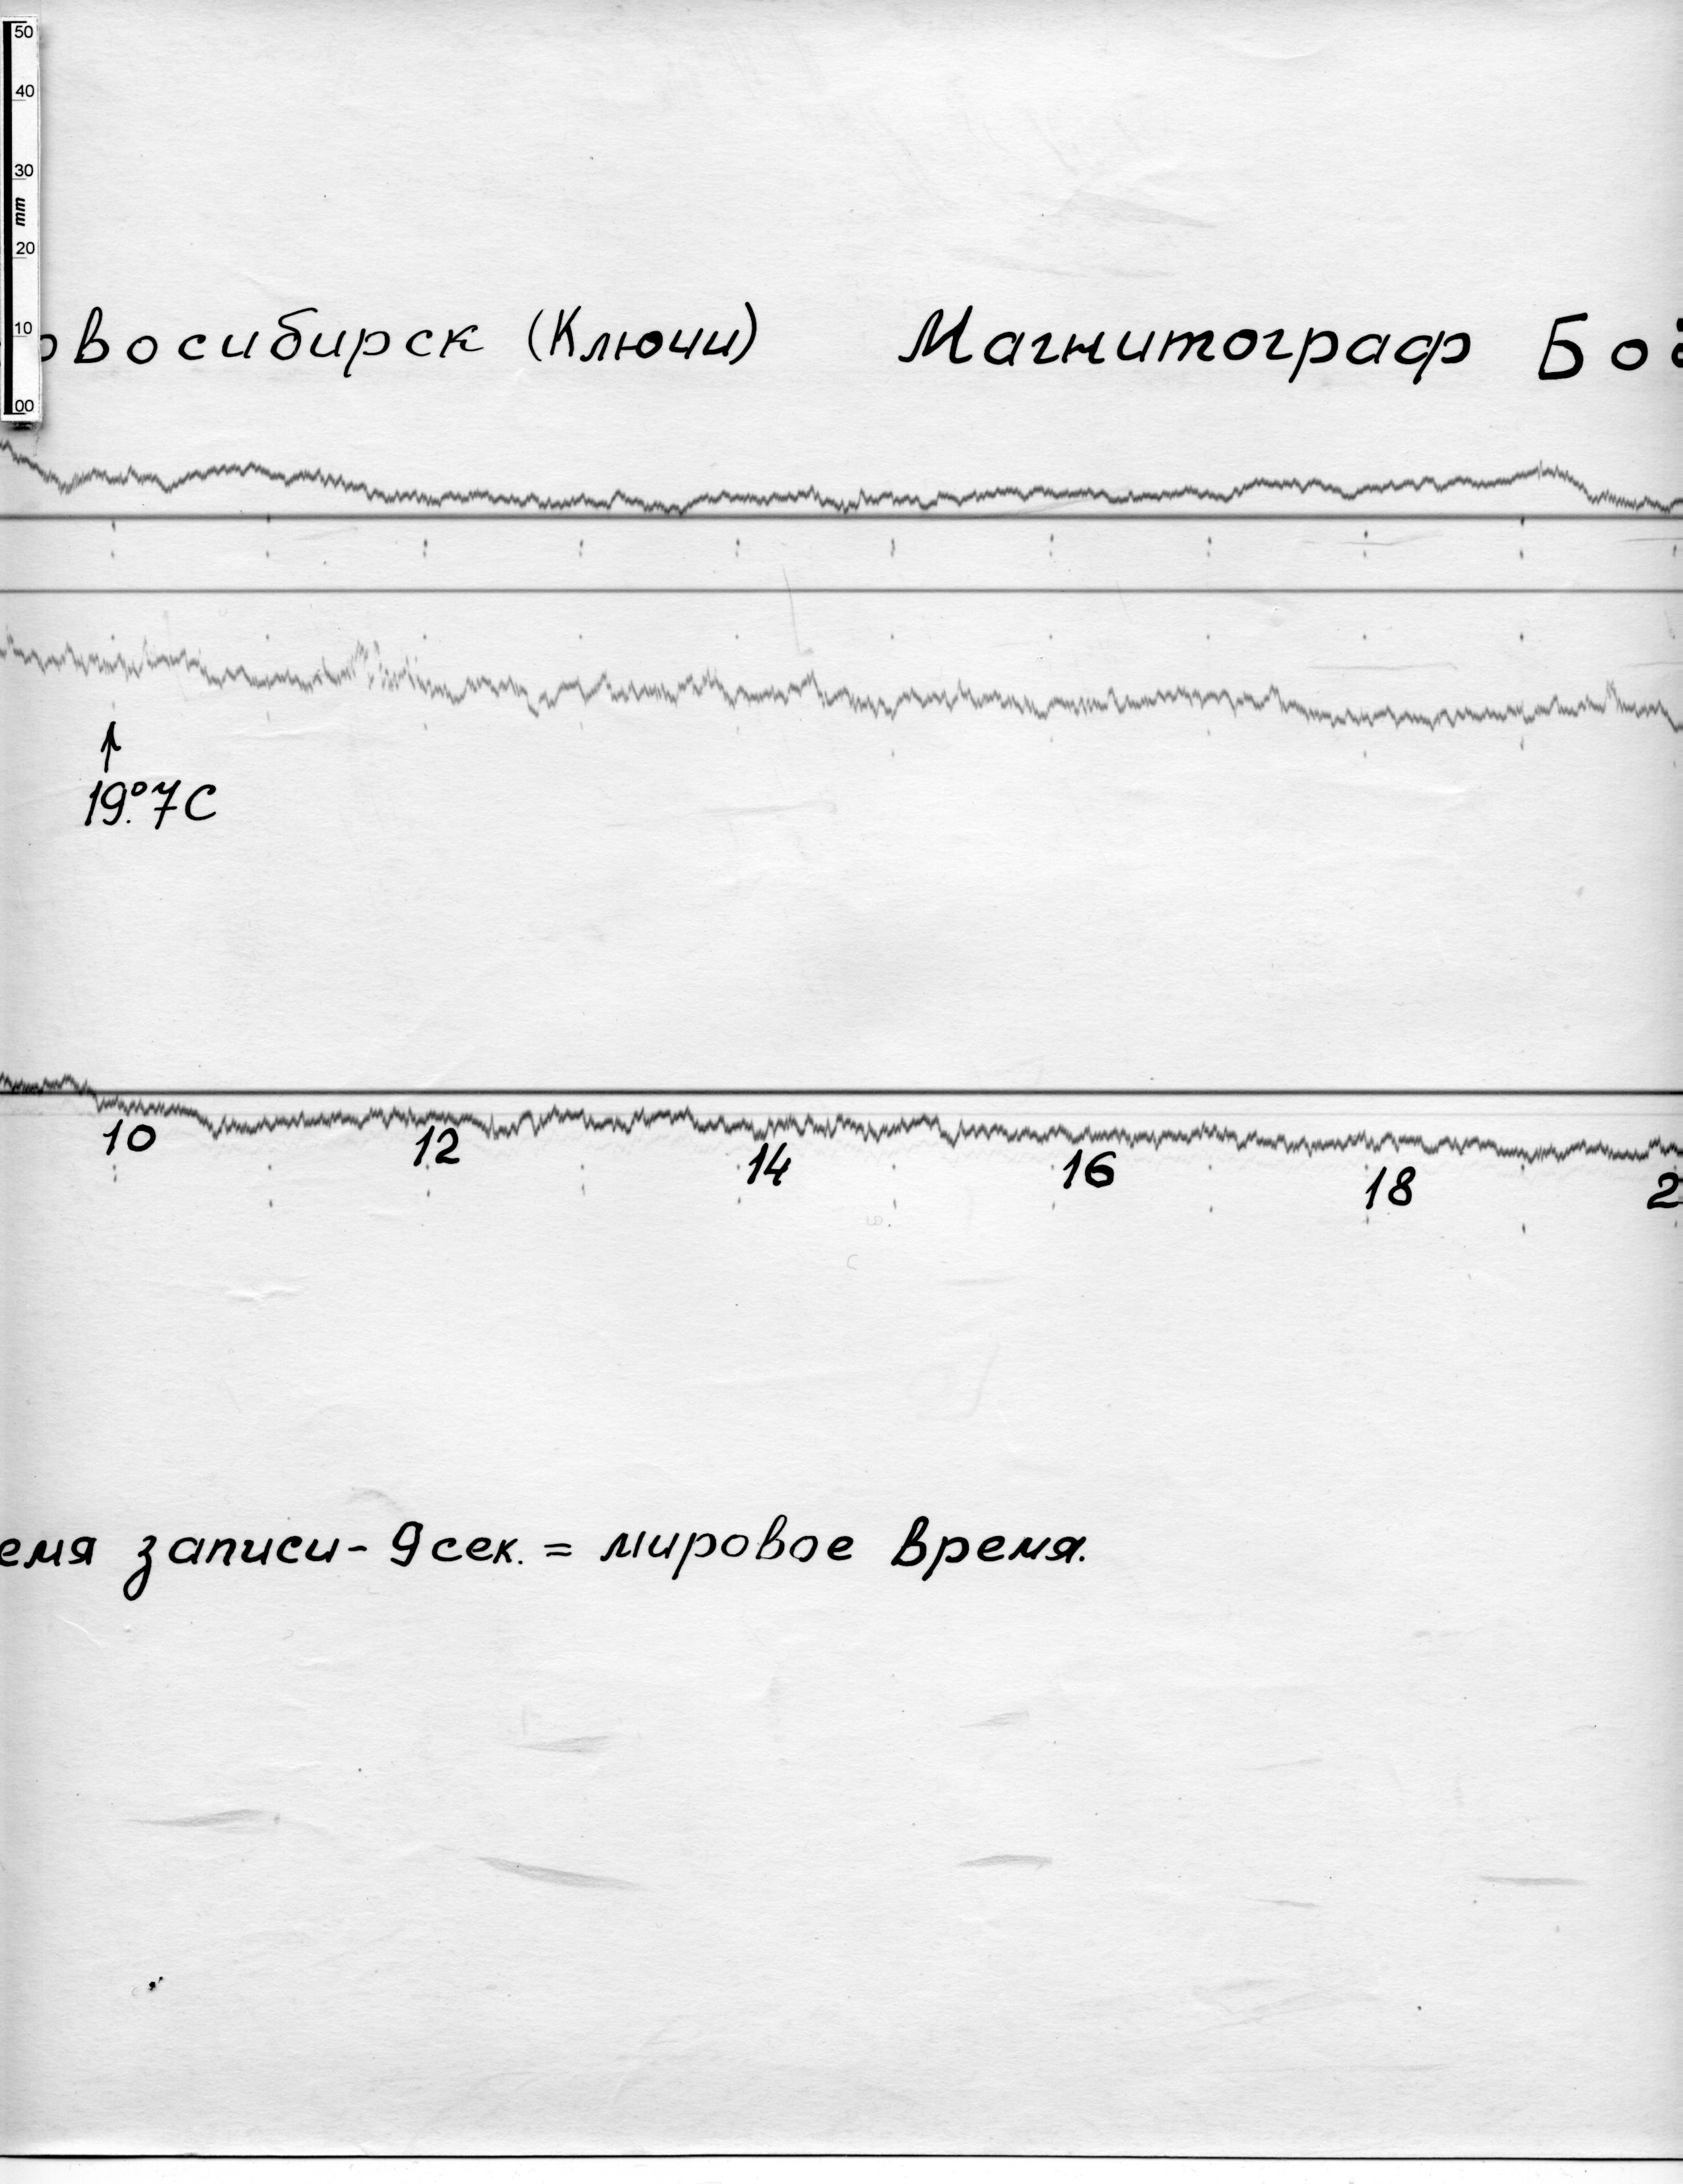 50
40
30
mm
20
10
00
овосибирск (Ключи) Магнитограф Бо
19.°7С
10 12 14 16 18 2
емя записи - 9 сек. = мировое время.